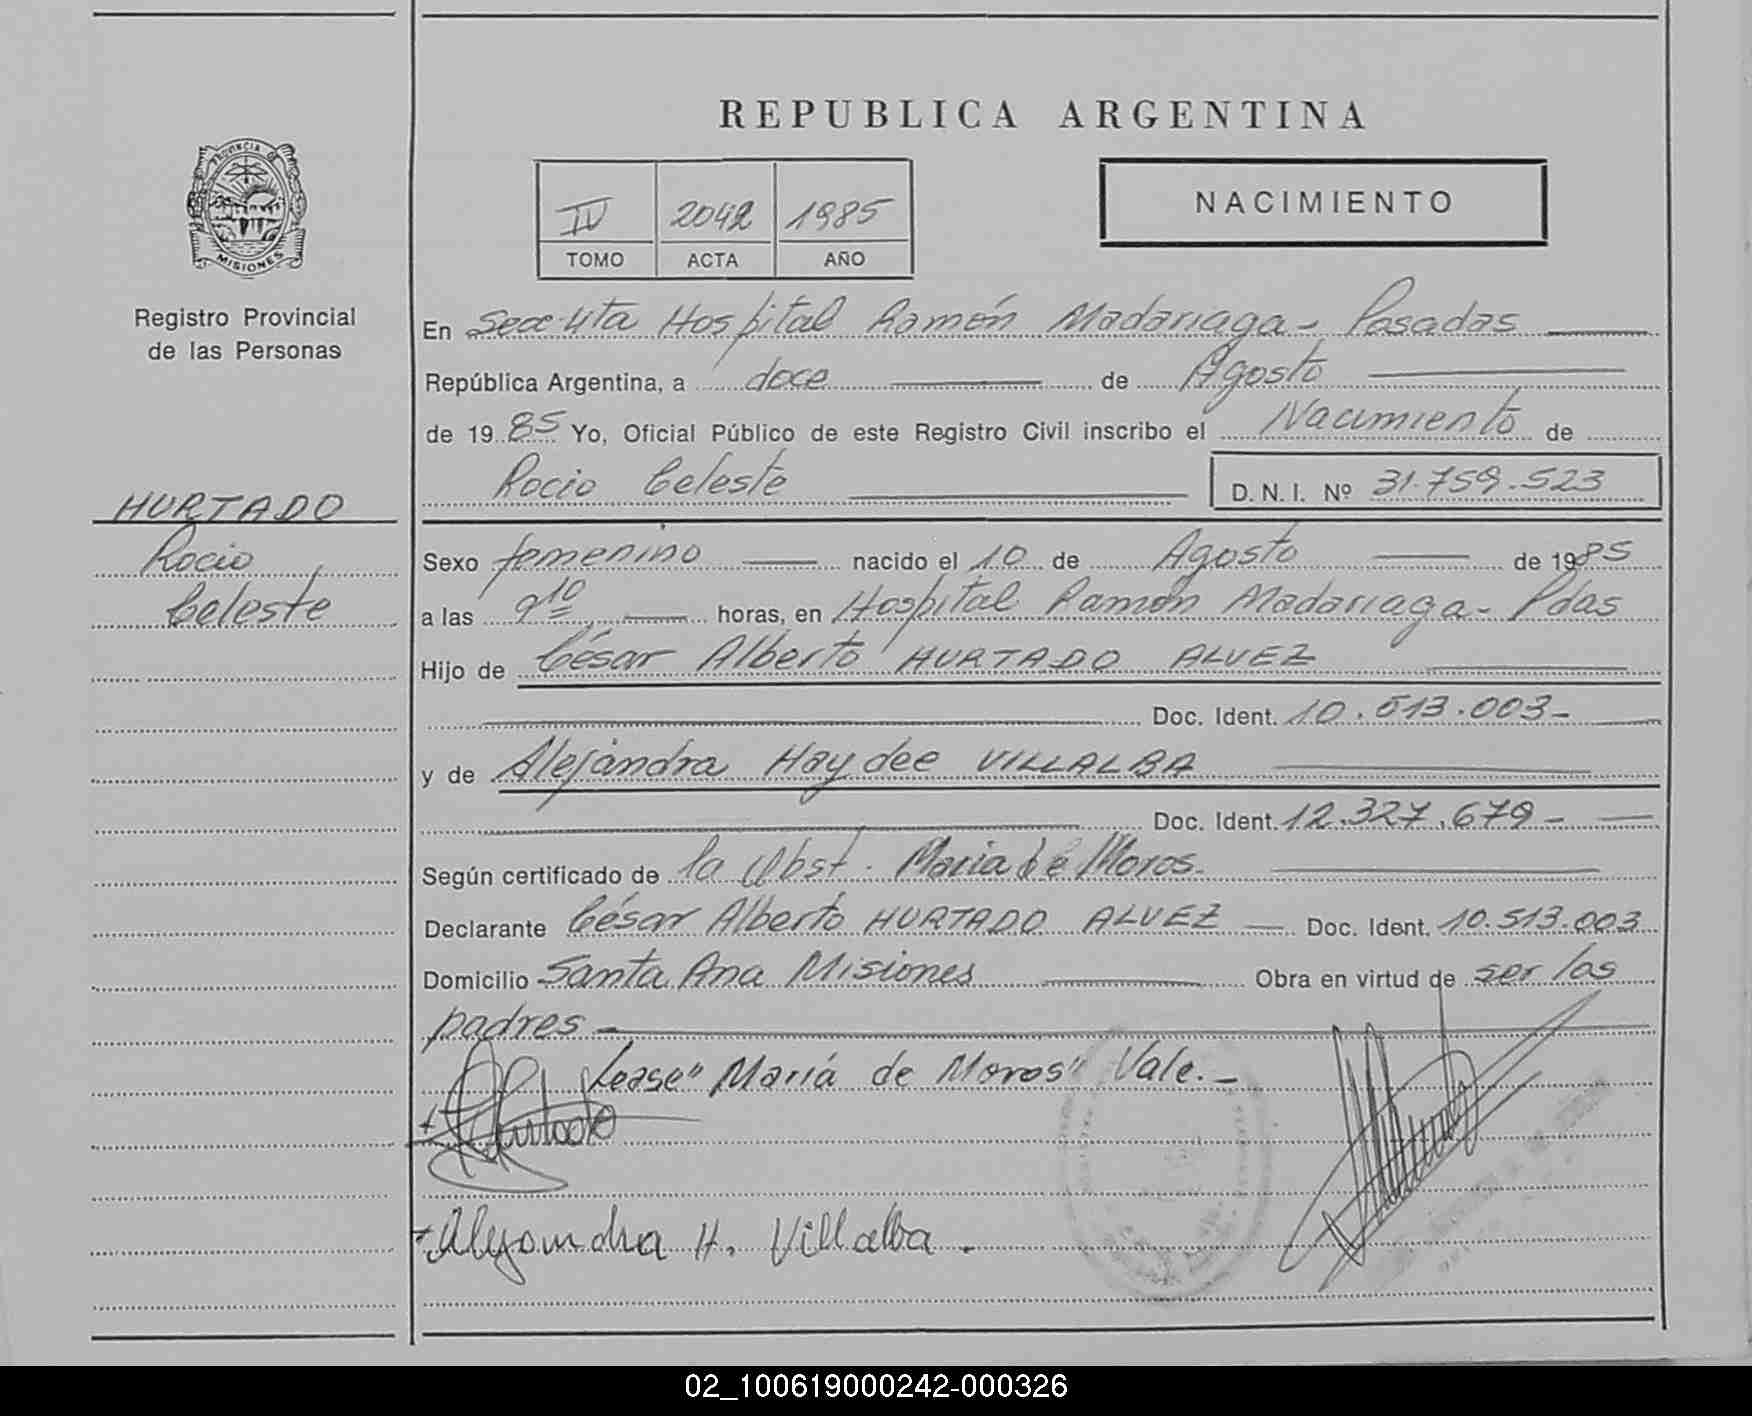 REPUBLICA ARGENTINA
PROVINCIA DE
MISIONES
Registro Provincial
de las Personas
IV 2042 1985
TOMO ACTA AÑO
NACIMIENTO
En Secc. 4ta Hospital Ramón Madariaga - Posadas
República Argentina, a doce de Agosto
de 1985 Yo, Oficial Público de este Registro Civil inscribo el Nacimiento de
Rocio Celeste D. N. I. Nº 31.759.523
HURTADO
Rocio
Celeste
Sexo femenino nacido el 10 de Agosto de 1985
a las 9 10 horas, en Hospital Ramón Madariaga - Pdas
Hijo de César Alberto HURTADO ALVEZ
Doc. Ident. 10.513.003-
y de Alejandra Haydee VILLALBA
Doc. Ident. 12.327.679-
Según certificado de la Obst. Maria de Moros
Declarante César Alberto HURTADO ALVEZ Doc. Ident. 10.513.003
Domicilio Santa Ana Misiones Obra en virtud de ser los
padres -
Lease "María de Moros" Vale.-
Hurtado
Alejandra H. Villalba.
02_100619000242-000326